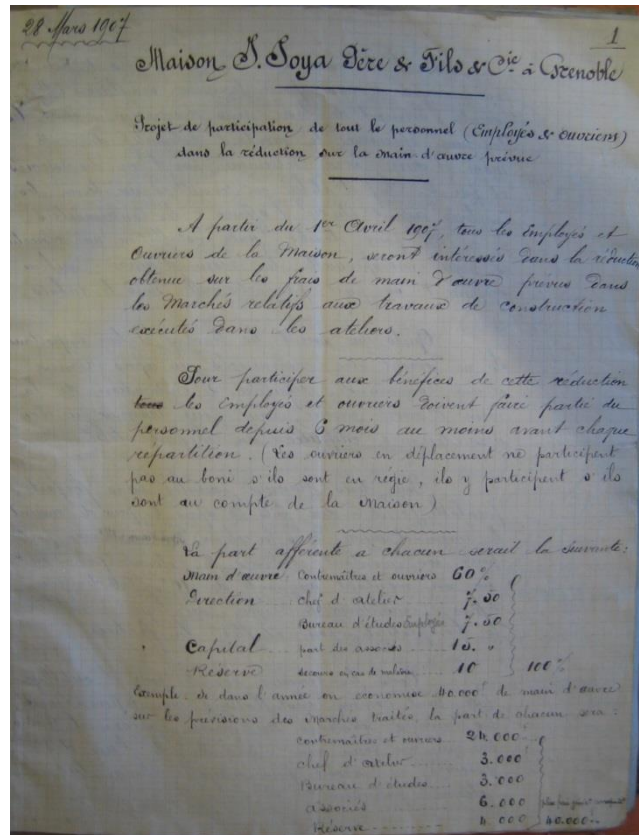 28 Mars 1907
1
Maison J. Joya Père & Fils & Cie à Grenoble
Projet de participation de tout le personnel (Employés & ouvriers)
dans la réduction sur la main d'œuvre prévue
A partir du 1er Avril 1907, tous les Employés et
Ouvriers de la Maison, seront intéressés dans la réduction
obtenue sur les frais de main d'œuvre prévus dans
les Marchés relatifs aux travaux de construction
exécutés dans les ateliers.
Pour participer aux bénéfices de cette réduction
tous les Employés et ouvriers doivent faire partie du
personnel depuis 6 mois au moins avant chaque
répartition. (Les ouvriers en déplacement ne participent
pas au boni s'ils sont en régie, ils y participent s'ils
sont au compte de la Maison)
La part afférente a chacun serait la suivante:
Main d'œuvre Contremaîtres et ouvriers 60 %
Direction chef d'atelier 7.50
Bureau d'études Employés 7.50
Capital part des associés 15. "
Réserve secours en cas de maladie 10 100 %
Exemple. Si dans l'année on économise 40.000f de main d'œuvre
sur les prévisions des Marchés traités, la part de chacun sera:
contremaîtres et ouvriers 24.000f
chef d'atelier 3.000
Bureau d'études 3.000
associés 6.000
Réserve 4.000 40.000f